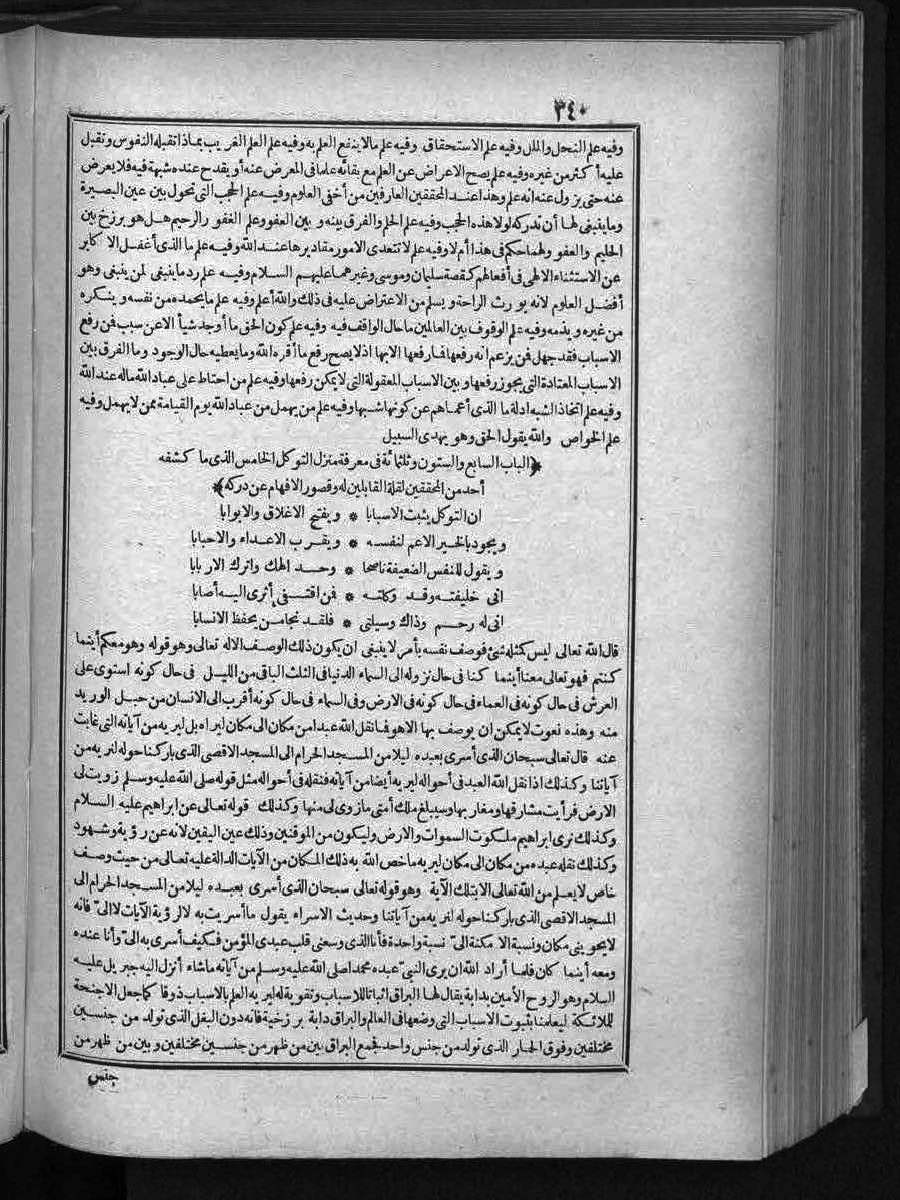 ٣٤٠
وفيه علم النحل والملل وفيه علم الاستحقاق وفيه علم مالا ينفع العلم به وفيه علم العلم الغريب بماذا تقبله النفوس وتقبل
عليه أكثر من غيره وفيه علم يصح الاعراض عن العلم مع بقائه علما في المعرض عنه أو يقدح عنده شبهة فيه فلا يعرض
عنه حتى يزول عنه انه علم وهذا عند المحققين العارفين من أخفى العلوم وفيه علم الحجب التي تحول بين عين البصيرة
وما ينبغي لها أن تدركه لولا هذه الحجب وفيه علم الحلم والفرق بينه وبين العفو وعلم الغفور الرحيم هل هو برزخ بين
الحليم والعفو ولهما حكم في هذا أم لا وفيه علم لا تتعدى الامور مقاديرها عند الله وفيه علم ما الذي أغفل الاكابر
عن الاستثناء الالهي في أفعالهم كقصة سليمان وموسى وغيرهما عليهم السلام وفيه علم رد ما ينبغي لمن ينبغي وهو
أفضل العلوم لانه يورث الراحة ويسلم من الاعتراض عليه في ذلك والله أعلم وفيه علم ما يحمده من نفسه وينكره
من غيره ويذمه وفيه علم الوقوف بين العالمين ما حال الواقف فيه وفيه علم كون الحق ما أوجد شيأ الا عن سبب فمن رفع
الاسباب فقد جهل فمن يزعم انه رفعها فما رفعها الا بها اذ لا يصح رفع ما أقره الله وما يعطيه حال الوجود وما الفرق بين
الاسباب المعتادة التي يجوز رفعها وبين الاسباب المعقولة التي لا يمكن رفعها وفيه علم من احتاط على عباد الله ماله عند الله
وفيه علم اتخاذ الشبه ادلة ما الذي أعماهم عن كونها شبها وفيه علم من يهمل من عباد الله يوم القيامة ممن لا يهمل وفيه
علم الخواص والله يقول الحق وهو يهدي السبيل
﴿الباب السابع والستون وثلثمائة في معرفة منزل التوكل الخامس الذي ما كشفه
أحد من المحققين لقلة القابلين له وقصور الافهام عن دركه﴾
ان التوكل يثبت الاسبابا * ويفتح الاغلاق والابوابا
ويجود بالخير الاعم لنفسه * ويقرب الاعداء والاحبابا
ويقول للنفس الضعيفة ناصحا * وحد الهك واترك الاربابا
اني خليفته وقد وكلته * فمن اقتفى أثرى اليه أصابا
اني له رحم وذاك وسيلتي * فلقد نجا من يحفظ الانسابا
قال الله تعالى ليس كمثله شئ فوصف نفسه بأمر لا ينبغي ان يكون ذلك الوصف الا له تعالى وهو قوله وهو معكم أينما
كنتم فهو تعالى معنا أينما كنا في حال نزوله الى السماء الدنيا في الثلث الباقي من الليل في حال كونه استوى على
العرش في حال كونه في العماء في حال كونه في الارض وفي السماء في حال كونه أقرب الى الانسان من حبل الوريد
منه وهذه نعوت لا يمكن ان يوصف بها الا هو فما نقل الله عبدا من مكان الى مكان ليراه بل ليريه من آياته التي غابت
عنه قال تعالى سبحان الذي أسرى بعبده ليلا من المسجد الحرام الى المسجد الاقصى الذي باركنا حوله لنريه من
آياتنا وكذلك اذا نقل الله العبد في أحواله ليريه أيضا من آياته فنقله في أحواله مثل قوله صلى الله عليه وسلم زويت لى
الارض فرأيت مشارقها ومغاربها وسيبلغ ملك أمتي ما زوى لى منها وكذلك قوله تعالى عن ابراهيم عليه السلام
وكذلك نرى ابراهيم ملكوت السموات والارض وليكون من الموقنين وذلك عين اليقين لانه عن رؤية وشهود
وكذلك نقله عبده من مكان الى مكان ليريه ما خص الله به ذلك المكان من الآيات الدالة عليه تعالى من حيث وصف
خاص لا يعلم من الله تعالى الا بتلك الآية وهو قوله تعالى سبحان الذي أسرى بعبده ليلا من المسجد الحرام الى
المسجد الاقصى الذي باركنا حوله لنريه من آياتنا وحديث الاسراء يقول ما أسريت به الا لرؤية الآيات لا الىّ فانه
لا يحويني مكان ونسبة الامكنة الىّ نسبة واحدة فأنا الذي وسعني قلب عبدي المؤمن فكيف أسرى به الىّ وأنا عنده
ومعه أينما كان فلما أراد الله ان يرى النبيّ عبده محمدا صلى الله عليه وسلم من آياته ما شاء أنزل اليه جبريل عليه
السلام وهو الروح الأمين بدابة يقال لها البراق اثباتا للاسباب وتقوية له ليريه العلم بالاسباب ذوقا كما جعل الاجنحة
للملائكة ليعلمنا بثبوت الاسباب التي وضعها في العالم والبراق دابة برزخية فانه دون البغل الذي تولد من جنسين
مختلفين وفوق الحمار الذي تولد من جنس واحد فجمع البراق بين من ظهر من جنسين مختلفين وبين من ظهر من
جنس